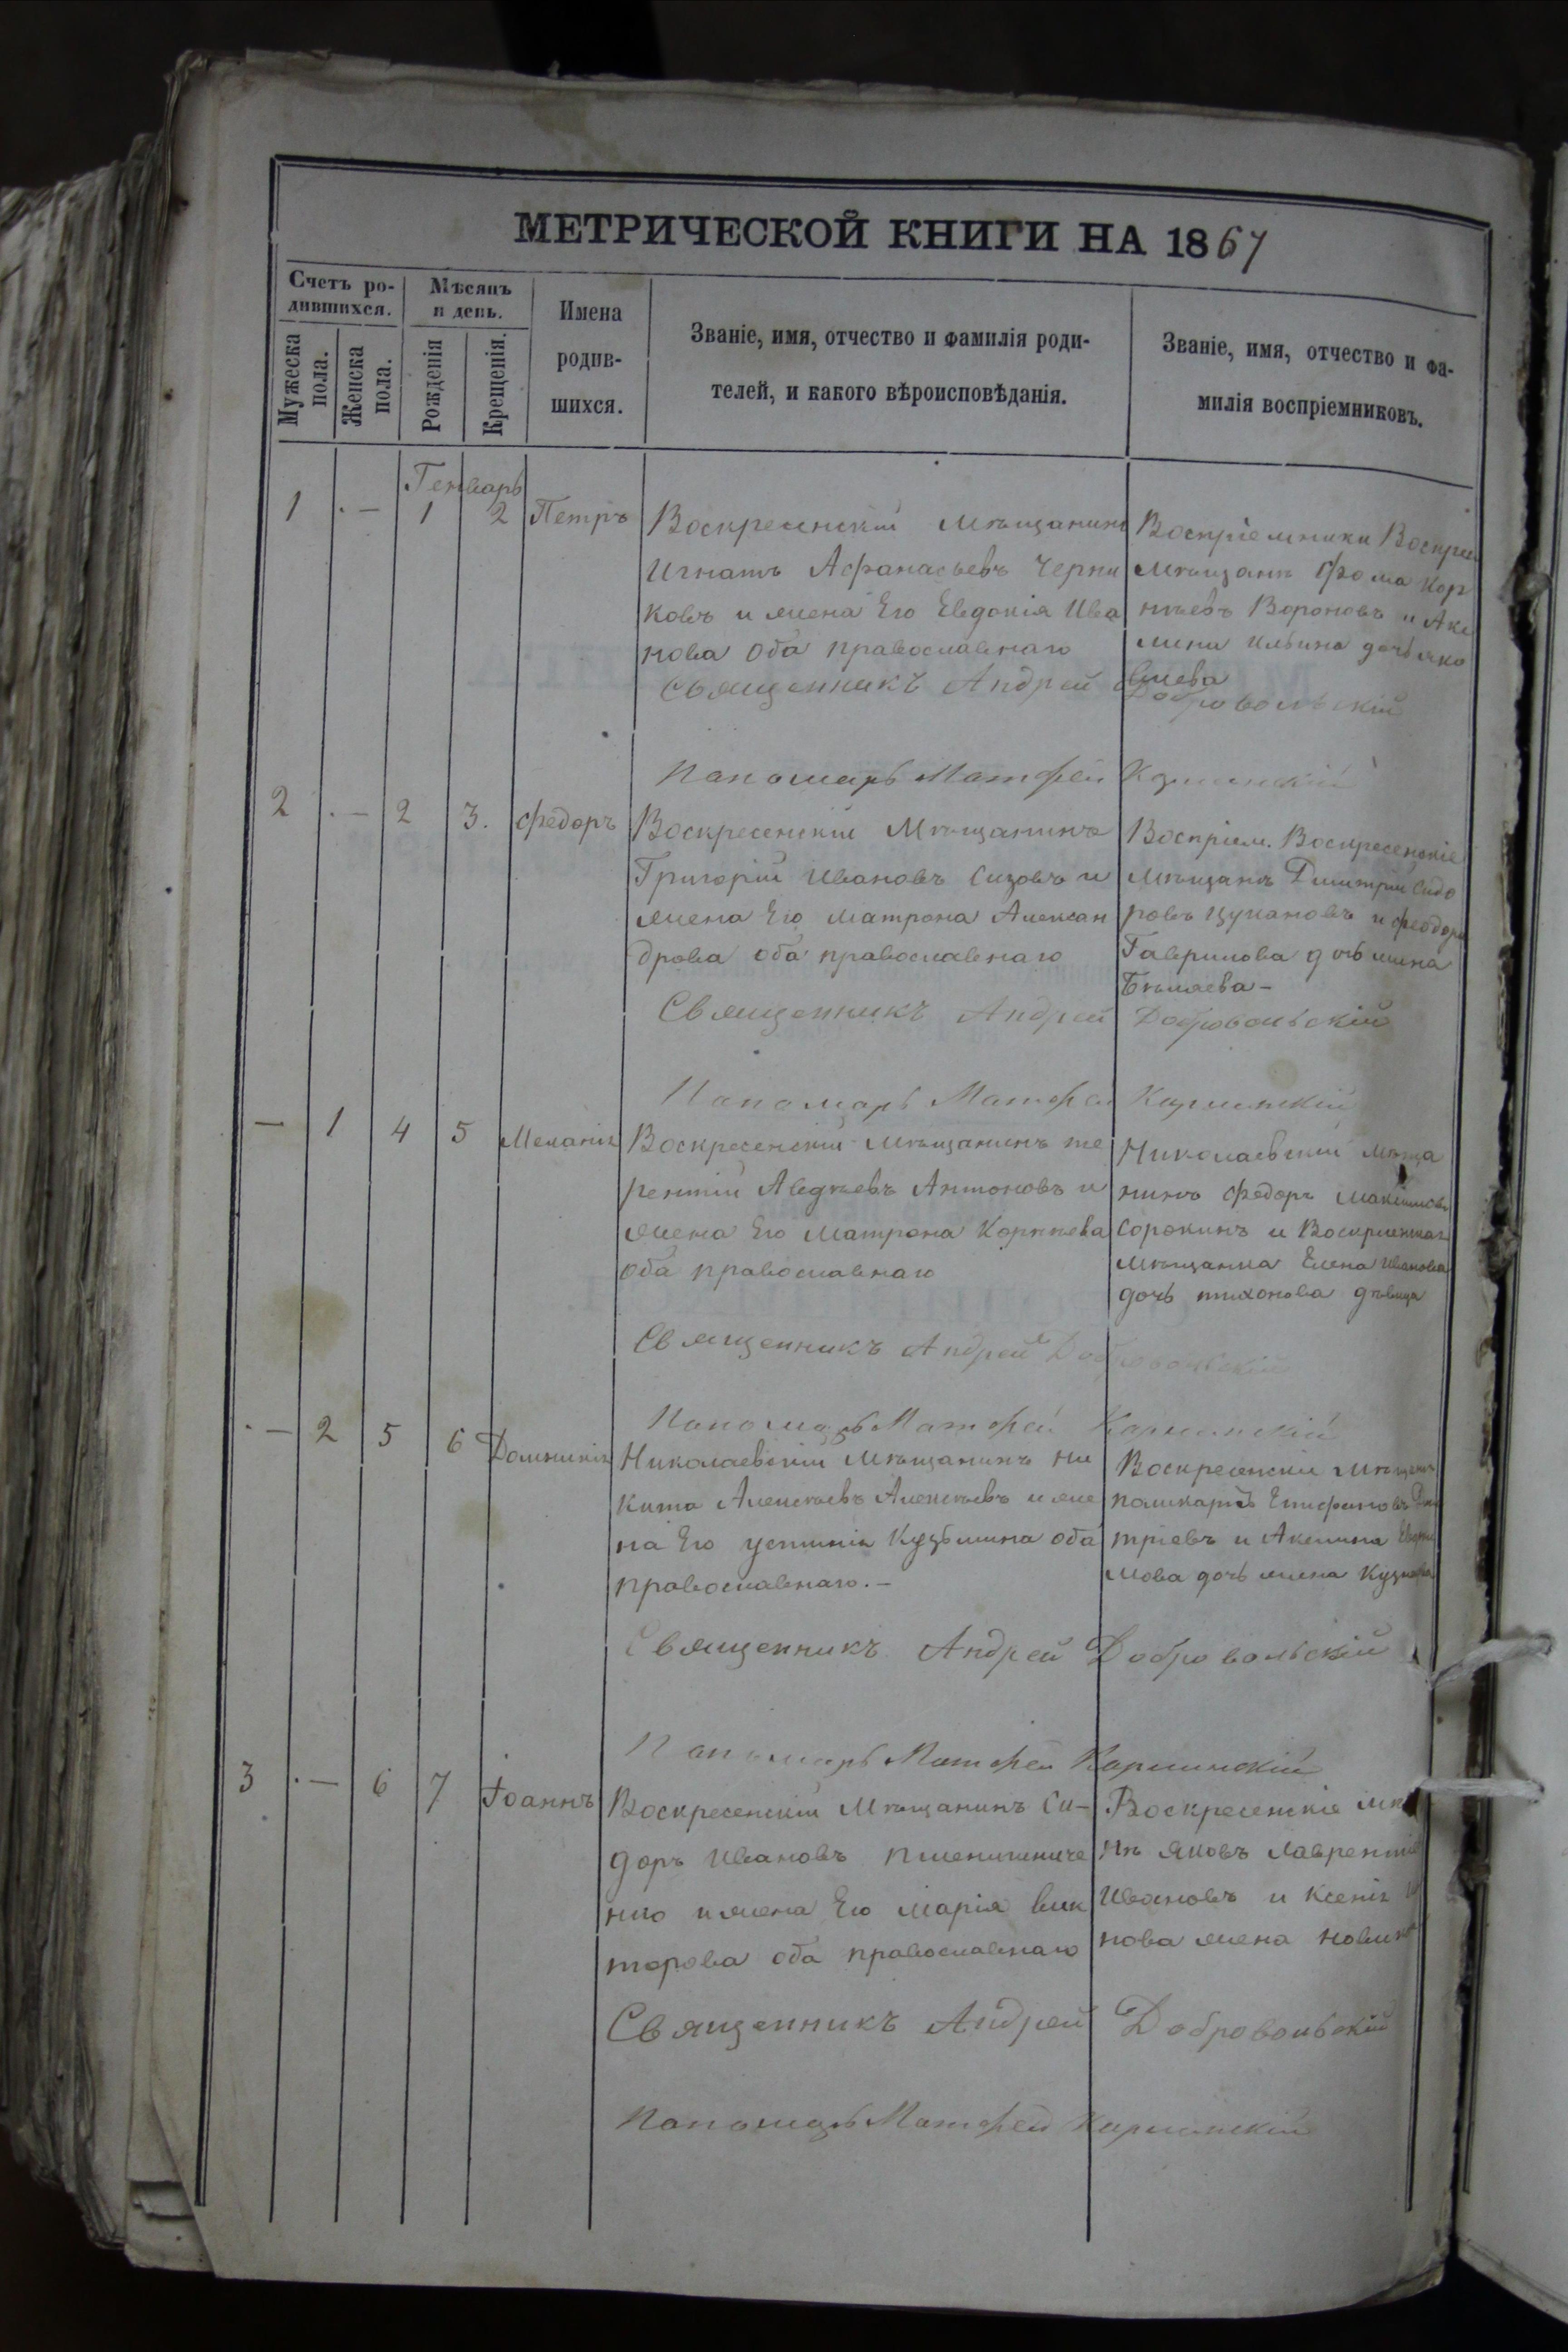 МЕТРИЧЕСКОЙ КНИГИ НА 1867
Счетъ ро-
дившихся.
Мѣсяцъ
и день.
Мужеска
пола.
Женска
пола.
Рожденія
Крещенія.
Имена
родив-
шихся.
Званіе, имя, отчество и фамилія роди-
телей, и какого вѣроисповѣданія.
Званіе, имя, отчество и фа-
милія воспріемниковъ.
Генварь
1 — 1 2 Петръ
Воскресенскій мѣщанинъ
Игнатъ Афанасьевъ Черни
ковъ и жена Его Евдокія Ива
нова оба православнаго
Воспріемники Воскресен
мѣщанъ Фома Кор
нѣевъ Вороновъ и Аке
лина Ильина дочь Яко
влева
Священникъ Андрей Добровольскій
Пономарь Матфей
2 — 2 3. Федоръ
Воскресенскій Мѣщанинъ
Григорій Ивановъ Сизовъ и
жена Его Матрона Алексан
дрова оба православнаго
Воспріем. Воскресенскіе
мѣщанъ Димитрій Сидо
ровъ Цукановъ и Феодора
Гаврилова дочь жена
Бѣляева —
Священникъ Андрей Добровольскій
Пономарь Матфей
— 1 4 5 Меланія
Воскресенскій мѣщанинъ Те
рентій Авдѣевъ Антоновъ и
жена Его Матрона Корнѣева
оба православнаго
Николаевскій мѣща
нинъ Федоръ Максимовъ
Сорокинъ и Воскресенская
мѣщанка Елена Иванова
дочь Тихонова дѣвица
Священникъ Андрей Добровольскій
Пономарь Матфей
— 2 5 6 Домникія
Николаевскій мѣщанинъ Ни
кита Алексѣевъ Алексѣевъ и же
на Его Устинія Кузьмина оба
православнаго. —
Воскресенскій мѣщанъ
Поликарпъ Епифановъ Дми
тріевъ и Акелина
мова дочь жена
Священникъ Андрей Добровольскій
Пономарь Матфей Карминскій
3 — 6 7 Іоаннъ
Воскресенскій мѣщанинъ Си-
доръ Ивановъ Пшениче
нко и жена Его Марія Вик
торова оба православнаго
Воскресенскіе мѣ
нъ Яковъ Лаврентіе
Ивановъ и Ксенія
нова жена
Священникъ Андрей Добровольскій
Пономарь Матфей Карминскій